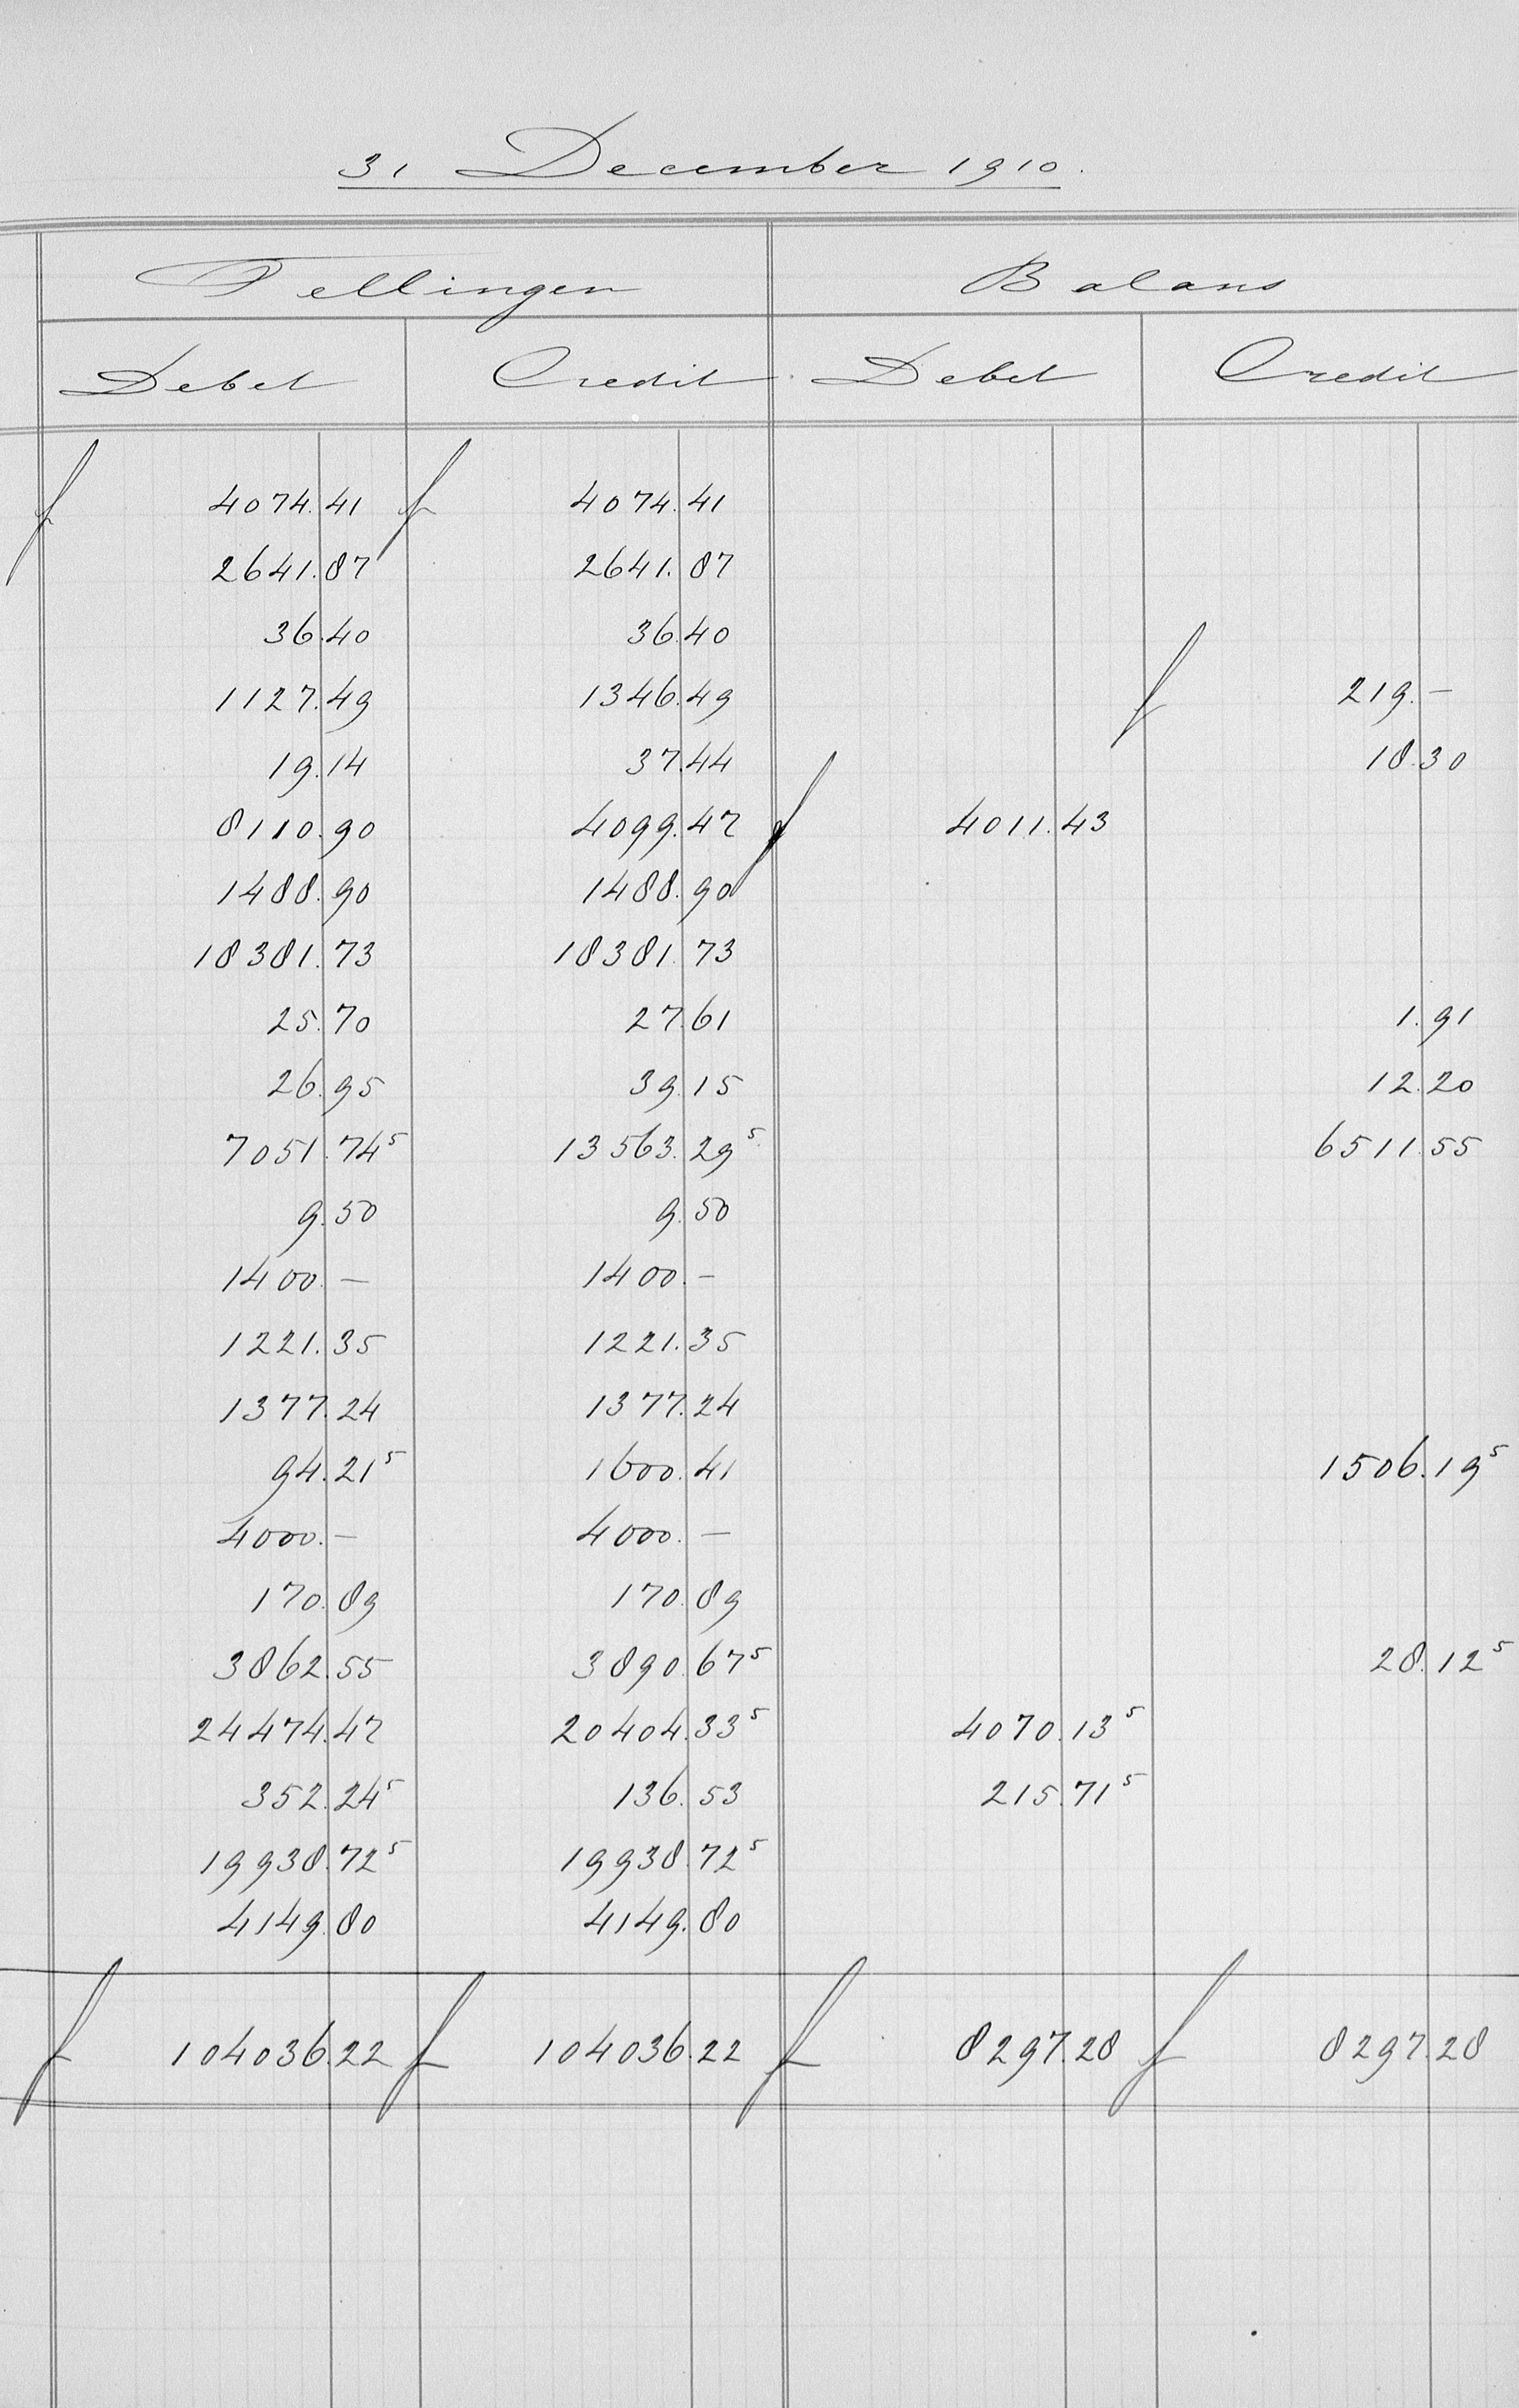 31 December 1910.
Tellingen Balans
Debet Credit Debet Credit
f 4074.41 f 4074.41
2641.87 2641.87
36.40 36.40
1127.49 1346.49 f 219.—
19.14 37.44 18.30
8110.90 4099.47 f 4011.43
1488.90 1488.90
18381.73 18381.73
25.70 27.61 1.91
26.95 39.15 12.20
7051.74⁵ 13563.29⁵ 6511.55
9.50 9.50
1400.— 1400.—
1221.35 1221.35
1377.24 1377.24
94.21⁵ 1600.41 1506.19⁵
4000.— 4000.—
170.89 170.89
3862.55 3890.67⁵ 28.12⁵
24474.47 20404.33⁵ 4070.13⁵
352.24⁵ 136.53 215.71⁵
19938.72⁵ 19938.72⁵
4149.80 4149.80
f 104036.22 f 104036.22 f 8297.28 f 8297.28